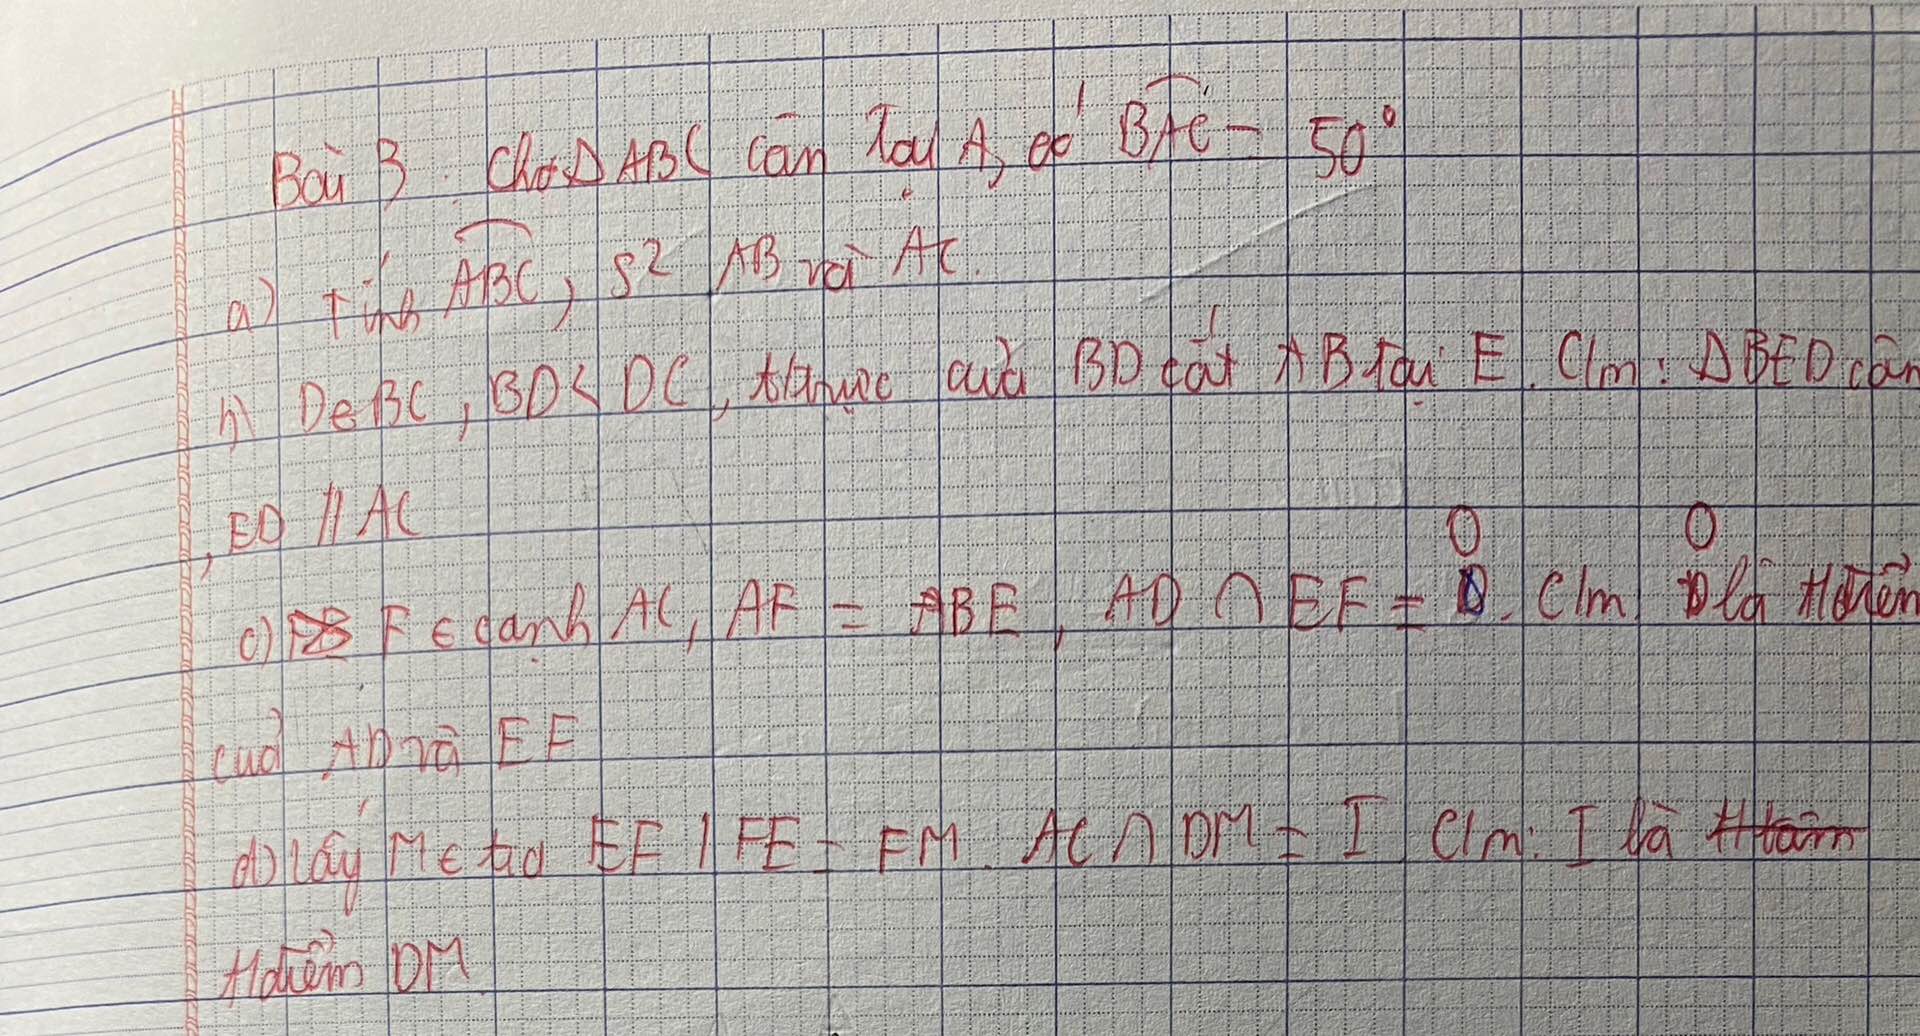 Bài 3. Cho Δ ABC cân tại A, có BAC = 50°
a) tính ABC, s² AB và AC.
b) D∈BC, BD< DC, t/trực của BD cắt AB tại E. C/m: Δ BED cân
, ED // AC
c) F ∈ cạnh AC, AF = BE, AD ∩ EF = O. C/m O là t/điểm
của AD và EF
d) lấy M ∈ tia EF / FE = FM. AC ∩ DM = I C/m: I là
t/điểm DM